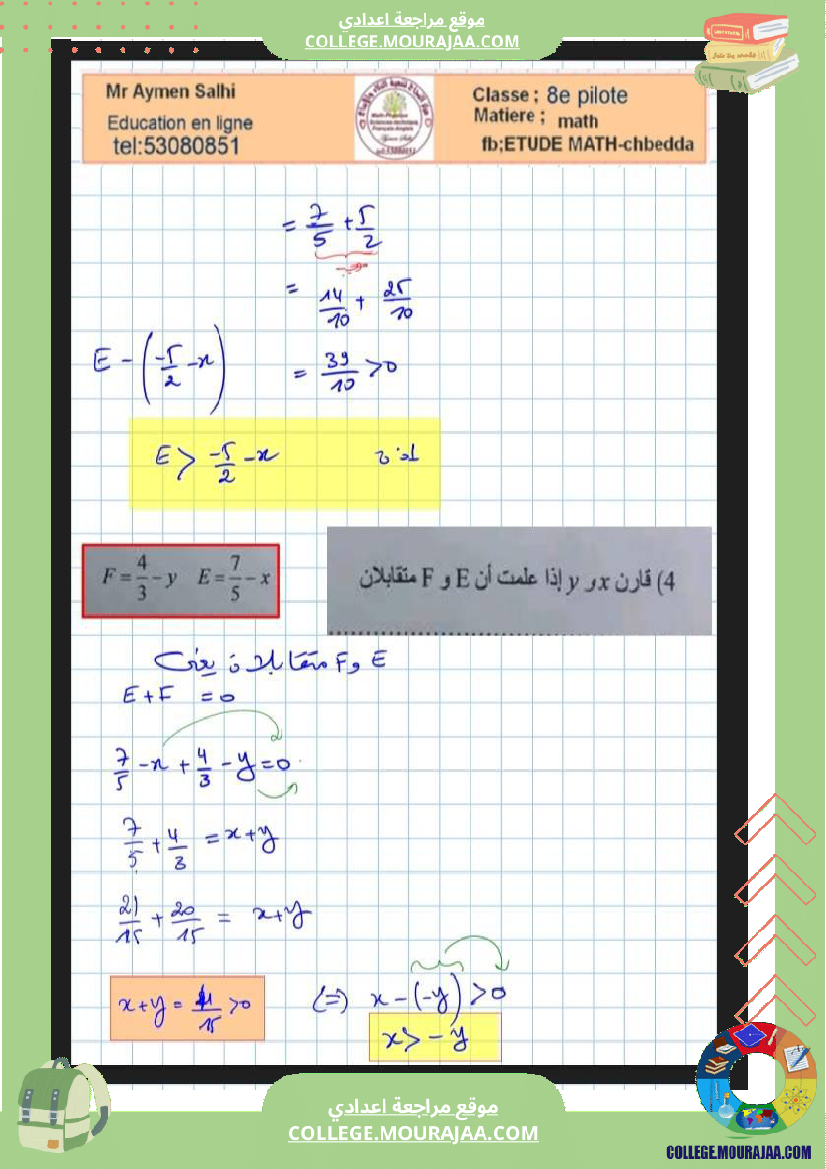 موقع مراجعة اعدادي
COLLEGE.MOURAJAA.COM
Mr Aymen Salhi
Education en ligne
tel:53080851
Classe ; 8e pilote
Matiere ; math
fb;ETUDE MATH-chbedda
= 7/5 + 5/2
= 14/10 + 25/10
E - (-5/2 - x) = 39/10 > 0
E > -5/2 - x إذن
F = 4/3 - y E = 7/5 - x
4) قارن x و y إذا علمت أن E و F متقابلان
E و F متقابلان يعني
E + F = 0
7/5 - x + 4/3 - y = 0
7/5 + 4/3 = x + y
21/15 + 20/15 = x + y
x + y = 41/15 > 0
(=) x - (-y) > 0
x > - y
موقع مراجعة اعدادي
COLLEGE.MOURAJAA.COM
COLLEGE.MOURAJAA.COM